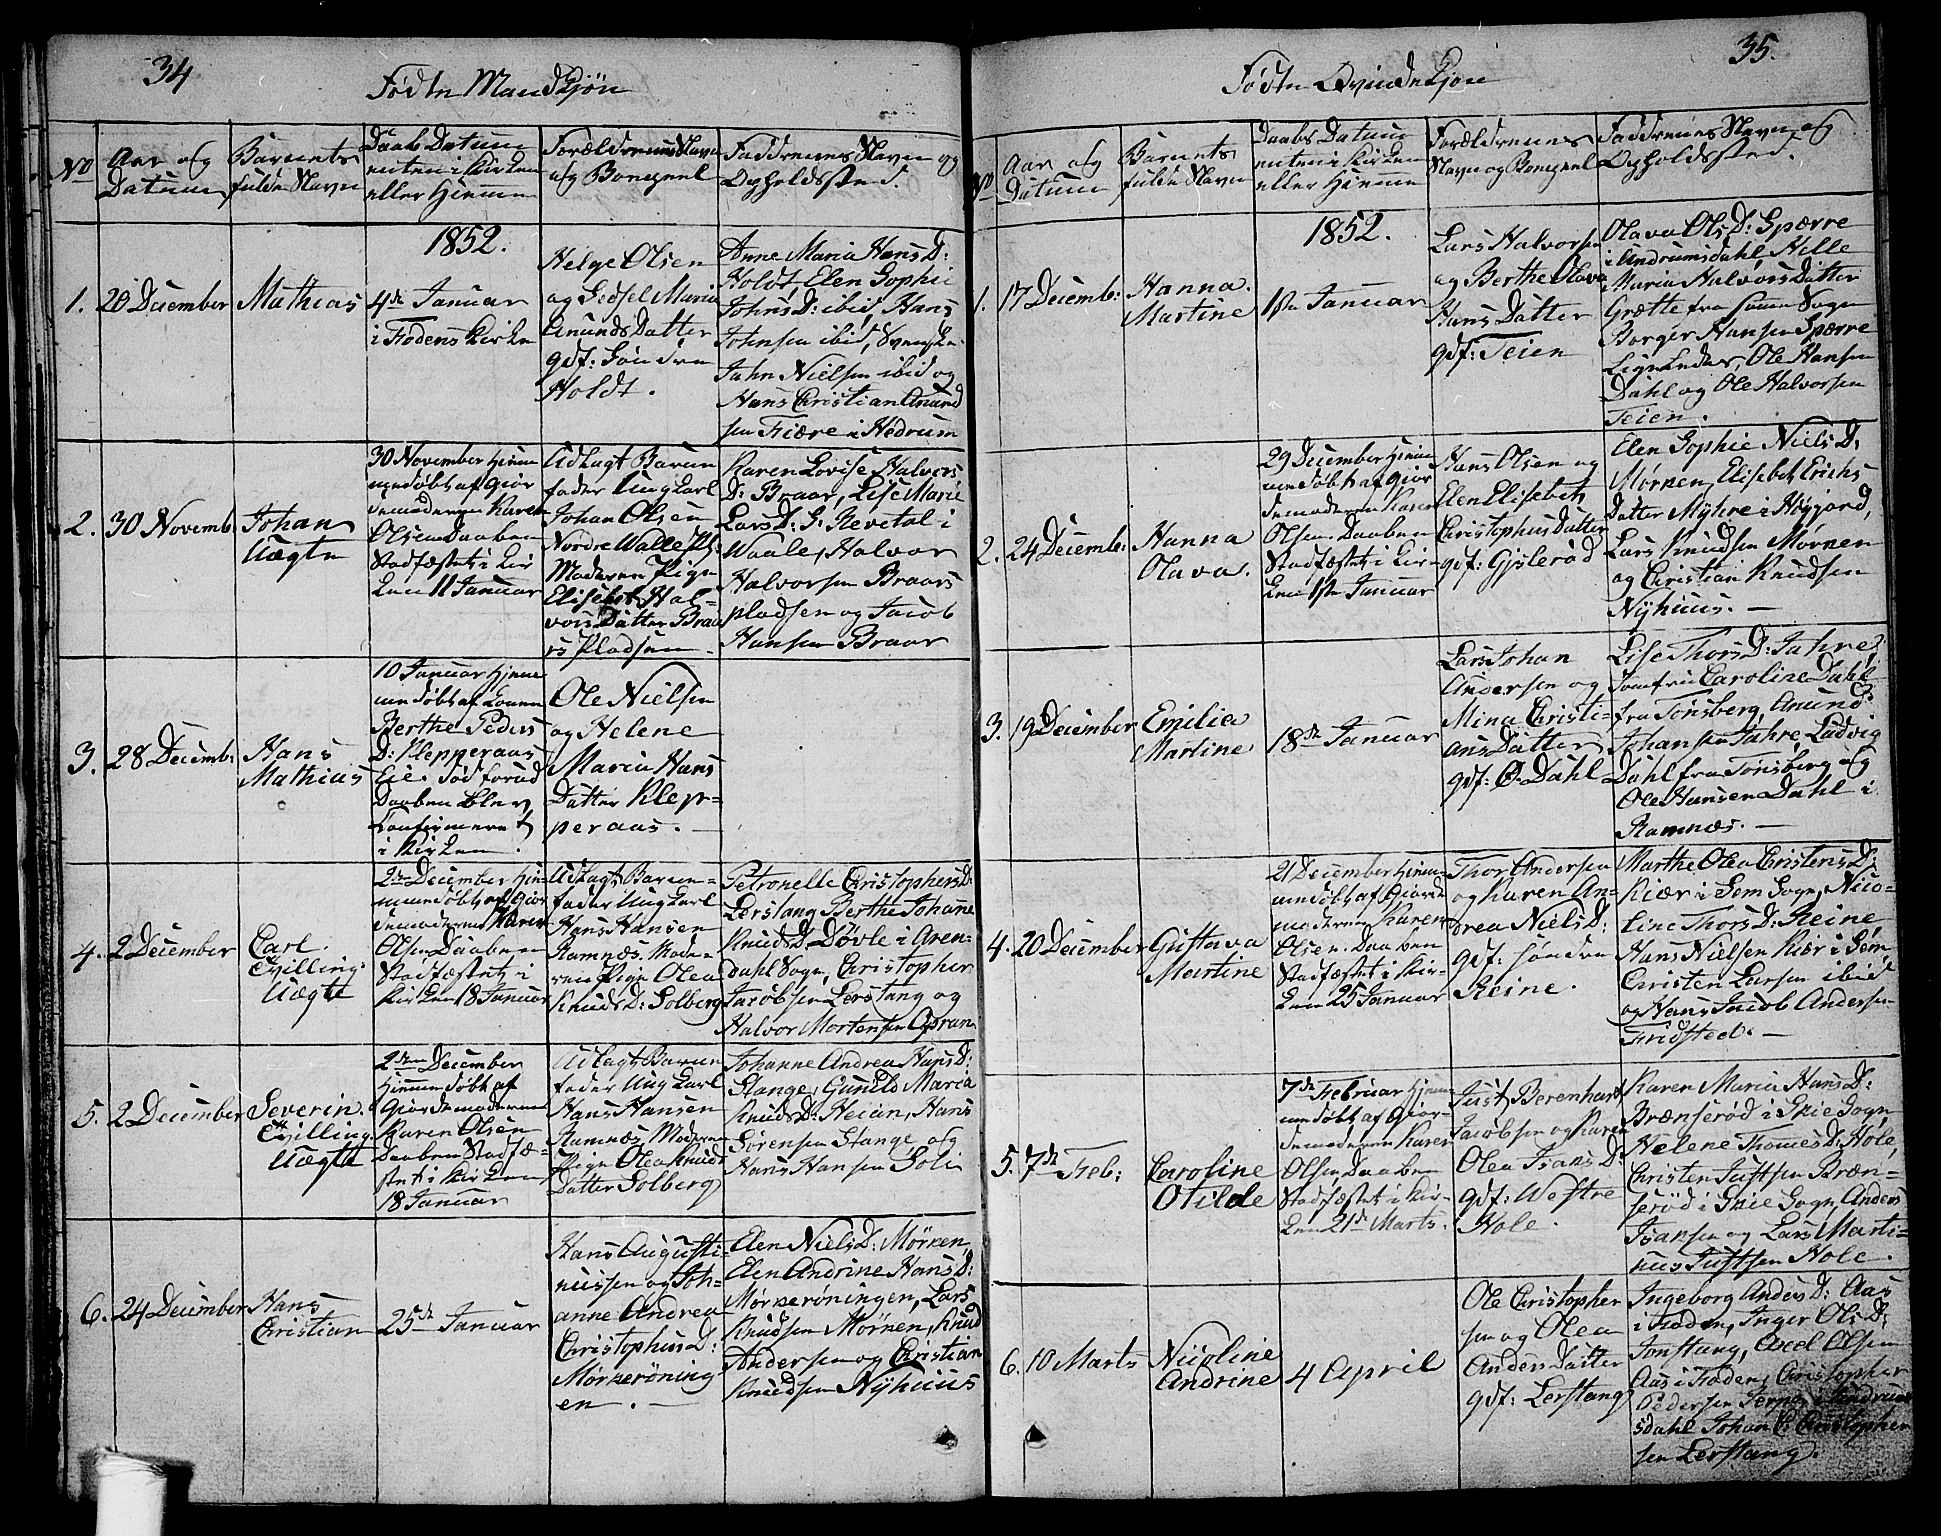 34
Fødte Mandkjön
No
Aar og
Datum
Barnets
fulde Navn
Daabs Datum
enten i Kirken
eller Hjemme
Forældrenes Navn
og Bopæl
Faddrenes Navn og
Opholdssted.
1852.
1.
20 December
Mathias
4de Januar
i Fodens Kirke
Helge Olsen
og Gidsel Maria
Anunds Datter
gdf: Söndre
Holdt.
Anne Maria Hans D:
Holdt, Elen Sophie
Johns D: ibid, Hans
Johnsen ibid, Svenske
Jahn Nielsen ibid og
Hans Christian Anund
sen Fiære i Hedrum
2.
30 Novemb:
Johan
Uægte
30 November Hjem
medøbt af Gjor
demoderen Karen
Olsen Daaben
Stadfæstet i Kir
ken 11 Januar
Udlagt Barne
fader Ung Karl
Johan Olsen
Nordre Walle Pl:
Moderen Pige
Elisebet Hal-
vors Datter Braa
rs Pladsen
Karen Lovise Halvors
D: Braar, Lise Marie
Lars D: S: Revetal i
Waale, Halvor
Halvorsen Braars
pladsen og Jacob
Hansen Braar
3.
28 Decemb:
Hans
Mathias
10 Januar Hjem
medøbt af Konen
Berthe Peders
D: Klepperaas
Eie. Død forud
Daaben blev
Confirmeret
i Kirken.
Ole Nielsen
og Helene
Maria Hans
Datter Klep-
peraas.
4.
2 December
Carl.
Tvilling.
Uægte
2den December Hjem-
medøbt af Gjor
demoderen Karen
Olsen Daaben
Stadfæstet i
Kirken 18 Januar
Udlagt Barne-
fader Ung Karl
Hans Hansen
Ramnæs. Mode-
ren Pige Olea
Knuds D: Solberg
Petronelle Christophers D:
Lerstang Berthe Johane
Knuds D: Døvle i Aren-
dahl Sogn, Christopher
Jacobsen Lerstang og
Halvor Mortensen Gran
5.
2 December
Severin.
Tvilling.
Uægte
2den December
Hjemmedøbt af
Gjordemoderen
Karen Olsen
Daaben Stadfæ-
stet i Kirken
18 Januar
Udlagt Barne
fader Ung Karl
Hans Hansen
Ramnæs Moderen
Pige Olea Knuds
Datter Solberg
Johanne Andrea Hans D:
Stange, Gunild Maria
Knuds D: Heian, Hans
Sörensen Stange og
Hans Hansen Soli
6.
24 December
Hans
Christian
25de Januar
Hans Augusti-
nussen og Joh-
anne Andrea
Christophus D:
Mørkeröning
en.
Elen Niels D: Mørken,
Elen Andrine Hans D:
Mørkeröningen, Lars
Knudsen Mørken, Knud
Andersen og Christian
Knudsen Nyhuus
35.
Fødte Qvindekjøn
No
Aar og
Datum
Barnets
fulde Navn
Daabs Datum
enten i Kirken
eller Hjemme
Forældrenes
Navn og Bopæl
Faddrenes Navn og
Opholdssted.
1852.
1.
17 Decemb:
Hanna.
Martine
1ste Januar
Lars Halvorsen
og Berthe Olava
Hans Datter
gdf: Teien
Olava Ols D: Spærre
i Andrumsdahl, Helle
Maria Halvors Datter
Grette fra same Sogn
Borger Hansen Spærre
Ligeledes, Ole Hansen
Dahl og Ole Halvorsen
Teien.
2.
24 Decemb:
Hanna
Olava.
29 December Hjem
medøbt af Gjor
demoderen Karen
Olsen. Daaben
Stadfæstet i Kir-
ken 1ste Januar
Hans Olsen og
Elen Elisebet
Christophus Datter
gdf: Gjslerød
Elen Sophie Niels D:
Mørken, Elisebet Erichs
Datter Myhre i Høyjord,
Lars Knudsen Mørken
og Christian Knudsen
Nyhuus.
3.
19 December
Emilia
Martine
18de Januar
Lars Johan
Andersen og
Mina Christi-
ans Datter
gdf: Ø. Dahl
Lise Thors D: Jahre,
Jomfru Caroline Dahl
fra Tønsberg, Anund
Johansen Jahre, Ludvig
Dahl fra Tønsberg og
Ole Hansen Dahl i
Ramnæs.
4.
20 December
Gustava
Martine
21 December Hjem-
medøbt af Gjorde
moderen Karen
Olsen. Daaben
Stadfæstet i Kir-
ken 25 Januar
Thor Andersen
og Karen An-
drea Niels D:
gdf: söndre
Reine.
Marthe Olea Christens D:
Kiær i Sem Sogn, Nico-
line Thors D: Reine
Hans Nielsen Kiær i Sem,
Christen Larsen ibid
og Hans Jacob Andersen
Fridsted.
5.
7de Feb:
Caroline
Otilde
7de Februar Hjem-
medøbt af Gjor-
demoderen Karen
Olsen, Daaben
Stadfæstet i Kir-
ken 21de Marts.
Just Berenhart
Jacobsen og Karen
Olea Isaks D:
gdf: Westre
Hole.
Karen Maria Hans D:
Brænserød i Skie Sogn
Helene Thomes D: Hole,
Christen Justsen Bræn-
serød i Skie Sogn, Anders
Isaksen og Lars Marti-
nus Justsen Hole.
6.
10 Marts
Nicoline
Andrine
4 April
Ole Christopher
sen og Olea
Anders Datter
gdf: Lerstang
Ingeborg Anders D: Aas
i Foden, Inger Ols D:
Jonstang, Axel Olsen
Aas i Foden, Christopher
Pedersen Serpe i Andrum
sdahl Johan C: Christopher
sen Lerstang.